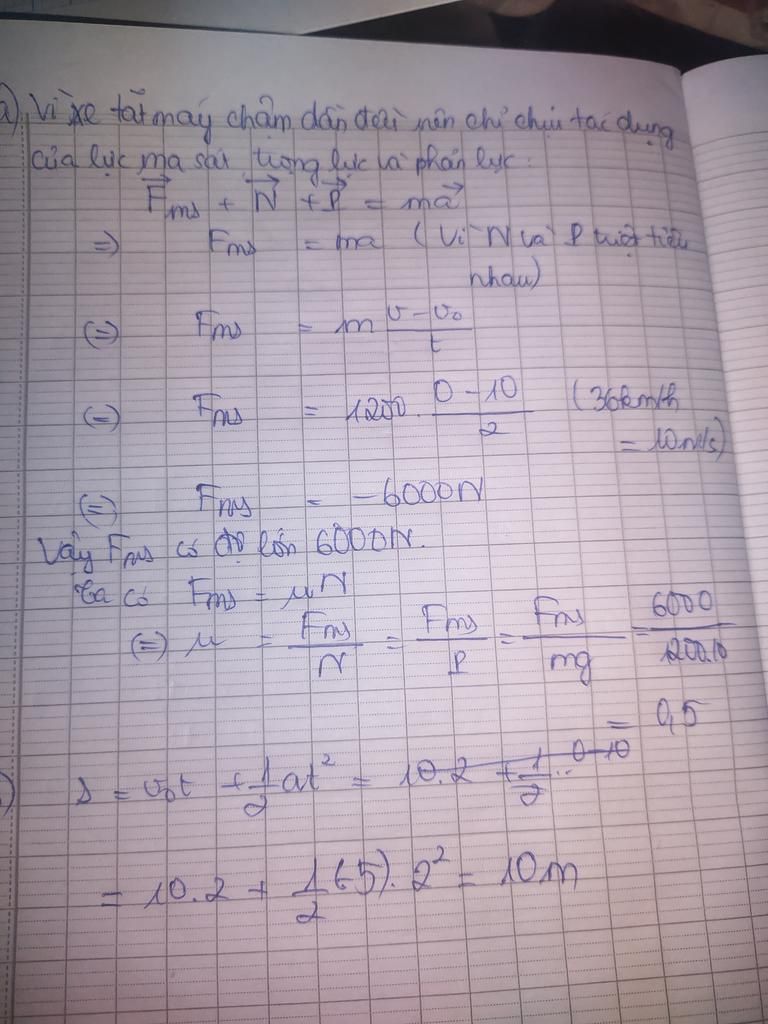 a) Vì xe tắt máy chậm dần đều nên chỉ chịu tác dụng
của lực ma sát, trọng lực và phản lực:
F⃗ms + N⃗ + P⃗ = ma⃗
⇒ Fms = ma (Vì N và P triệt tiêu
nhau)
(=) Fms = m (v - v₀)/t
(=) Fms = 1200. (0 - 10)/2 (36km/h
= 10m/s)
(=) Fms = -6000N
Vậy Fms có độ lớn 6000N.
Ta có Fms = μN
(=) μ = Fms/N = Fms/P = Fms/mg = 6000/1200.10
= 0,5
) s = v₀t + 1/2 at² = 10.2 + 1/2 .. 0-10
= 10.2 + 1/2 (-5). 2² = 10m